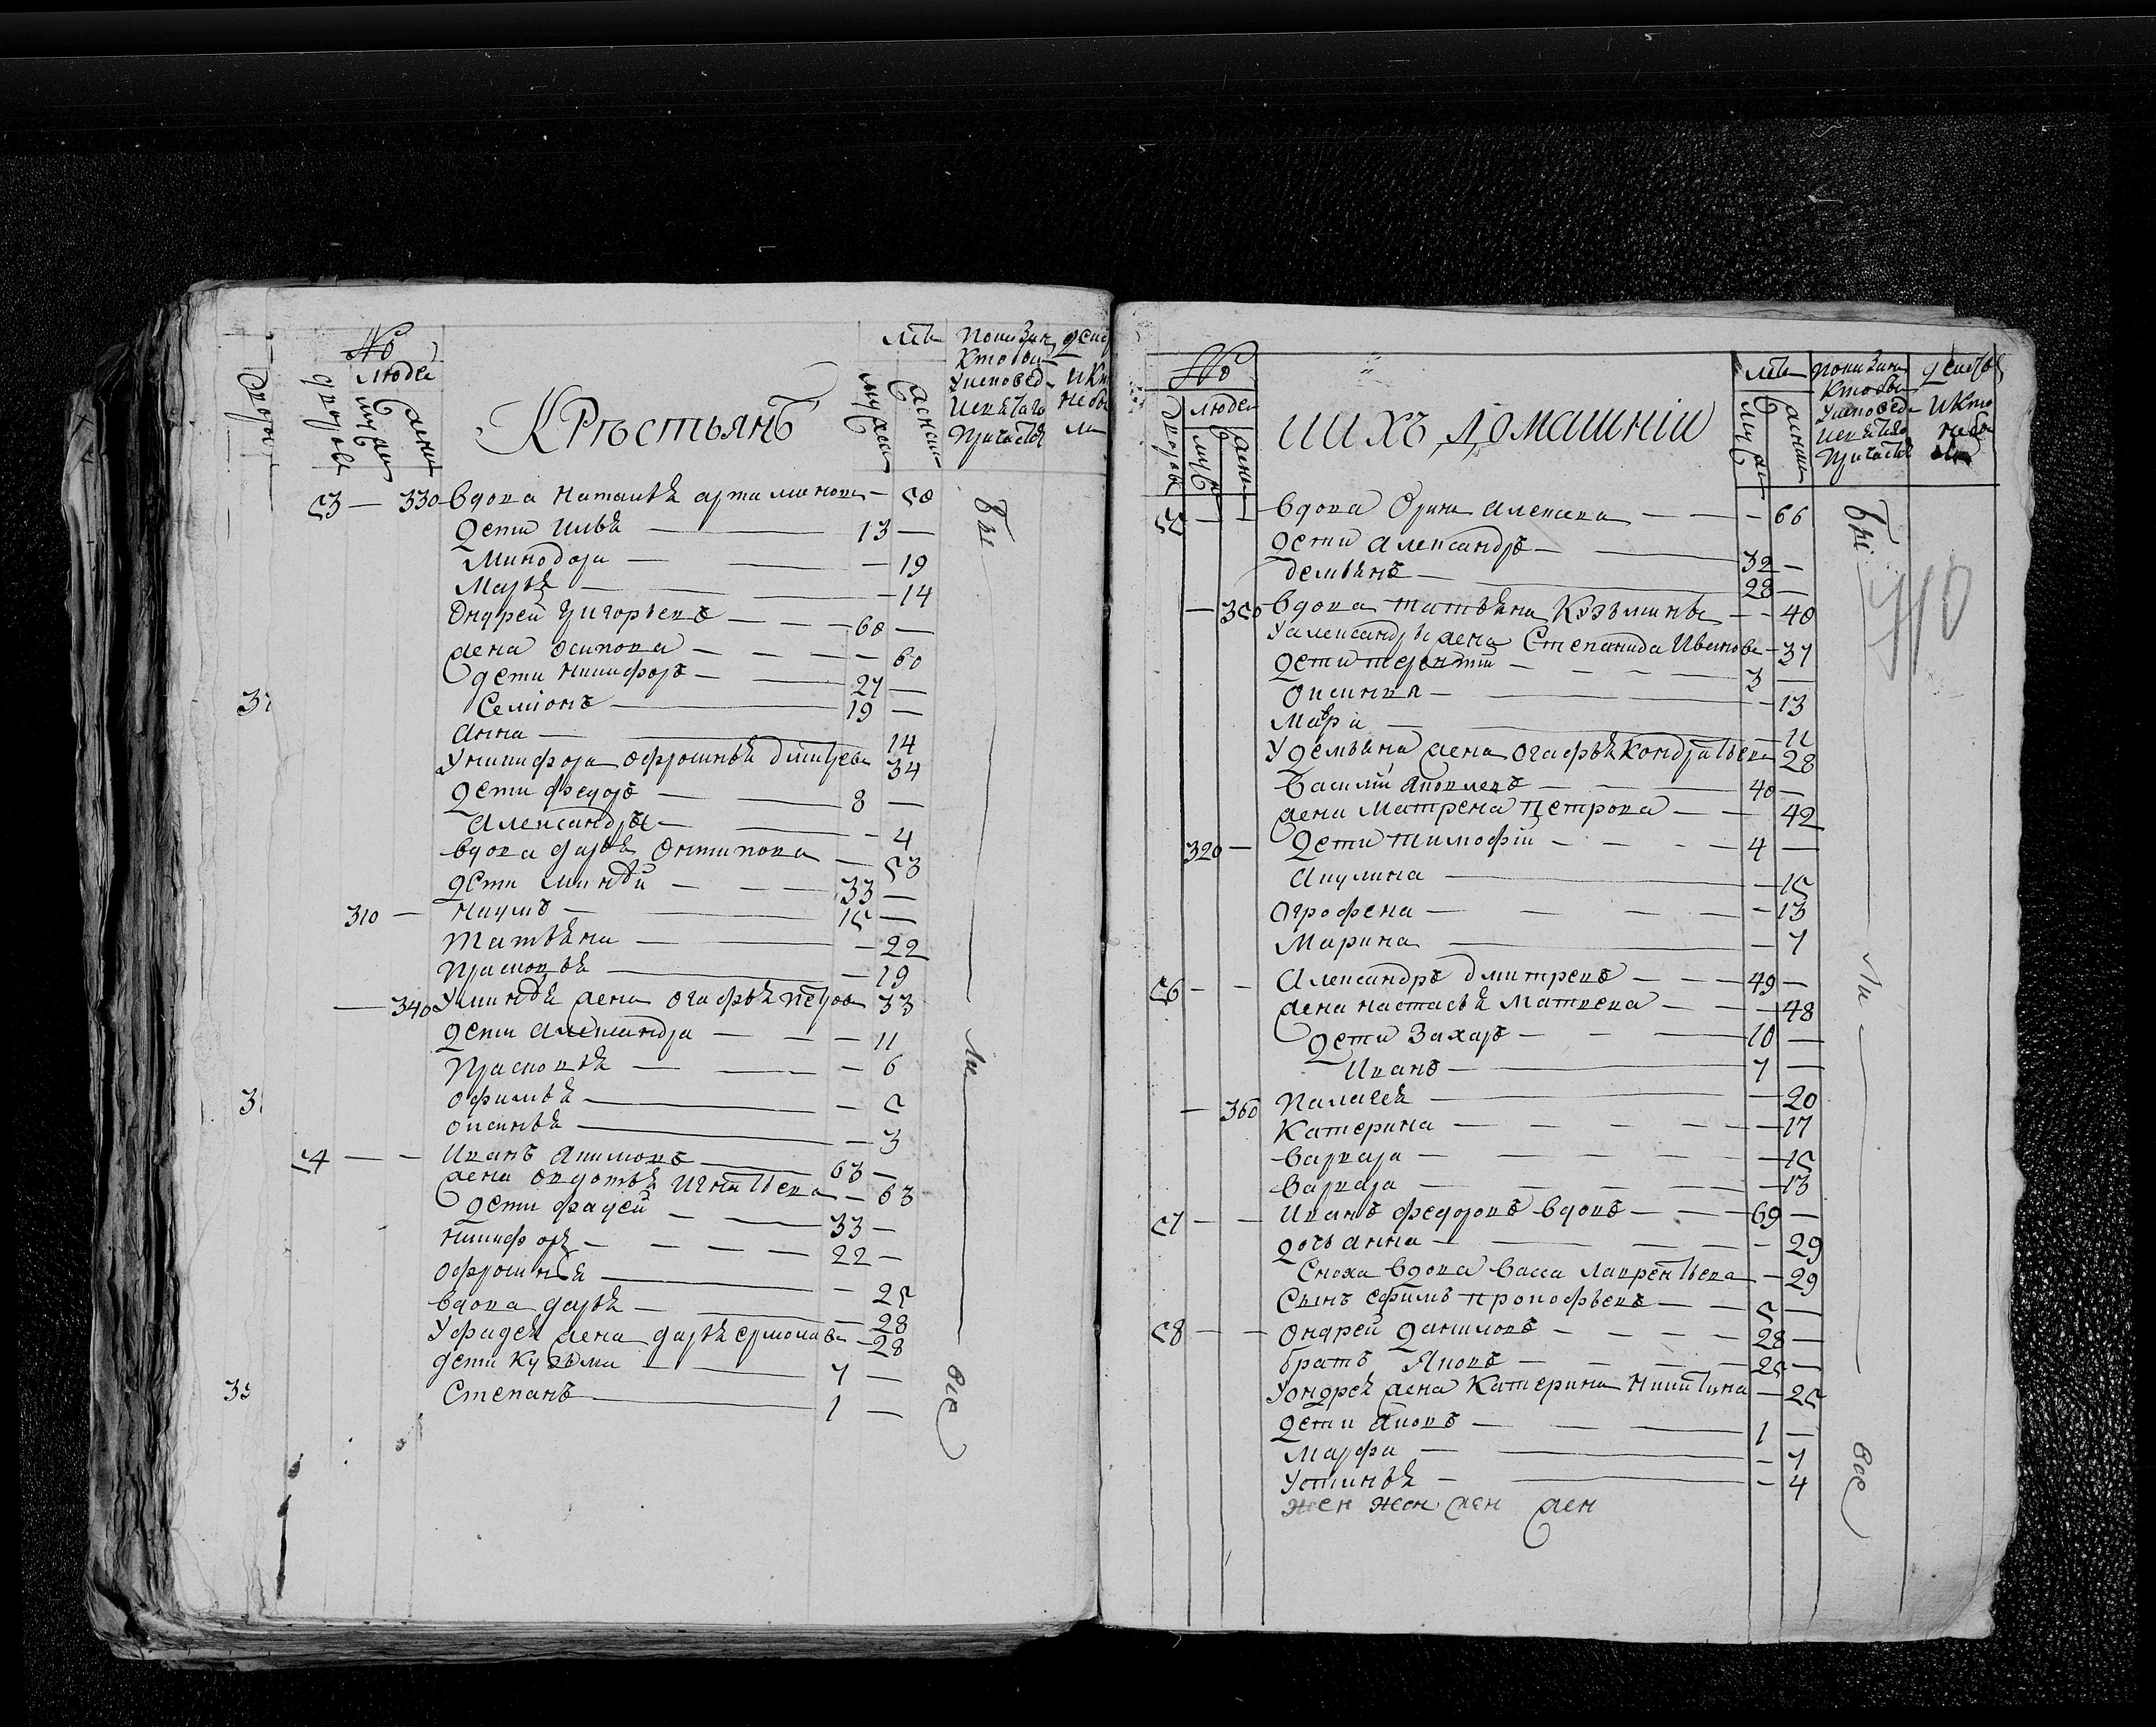 №
людей
дворовъ
мужеска
женска
Кръстьянъ
лѣтъ
мужеска
женска
53 — 330 вдова Наталья Артамонова — 50
дети Илья — 13 —
Минодора — 19
Марья — 14
Ондрей Григорьевъ — 60 —
жена Осипова — 60
дети Никифоръ — 27 —
Семионъ — 19 —
Анна — 14
У Никифора Офросинья Дмитрева 34
дети Федоръ — 8 —
Александра — 4
вдова Дарья Онтипова — 53
дети Миней — 33 —
310 — Наумъ — 15 —
Татьяна — 22
Прасковья — 19
— 340 У Минея жена Огафья Петрова 33
дети Александра — 11
Прасковья — 6
Офимья — 5
Оксинья — 3
54 — — Иванъ Акимовъ — 63 —
жена Овдотья Игнатьева — 63
дети Фадей — 33 —
Никифоръ — 22 —
Офросинья — 25
вдова Дарья — 28
У Фадея жена Дарья Ермолаева — 28
дети Кузьма — 7 —
Степанъ — 1 —
бы
ли
все
№
людей
дворовъ
муж
женск
иихъ домашнии
лѣтъ
муже
женска
55 — — вдова Орина Алексева — 66
дети Александръ — 32 —
Демьянъ — 28 —
— 350 вдова Татьяна Козьмина — 40
У Александра жена Степанида Иванова — 37
дети Терентий — 3 —
Оксинья — 13
Мавра — 11
У Демьяна жена Огафья Кондратьева 28
Василий Яковлевъ — 40 —
жена Матрена Петрова — 42
320 — дети Тимофий — 4 —
Акулина — 15
Огрофена — 13
Марина — 7
56 — — Александръ Дмитревъ — 49 —
жена Настасья Матвева — 48
дети Захаръ — 10 —
Иванъ — 7 —
— 360 Палагея — 20
Катерина — 17
Варвара — 15
Варвара — 13
57 — — Иванъ Федоровъ вдовъ — 69 —
дочь Анна — 29
Сноха вдова Васса Лаврентьева — 29
Сынъ Ефимъ Прокофьевъ — 5 —
58 — — Ондрей Даниловъ — 28 —
братъ Яковъ — 25 —
У Ондрея жена Катерина Никитина — 25
дети Яковъ — 1 —
Марфа — 7
Устинья — 4
жен жен жен жен
бы
ли
все